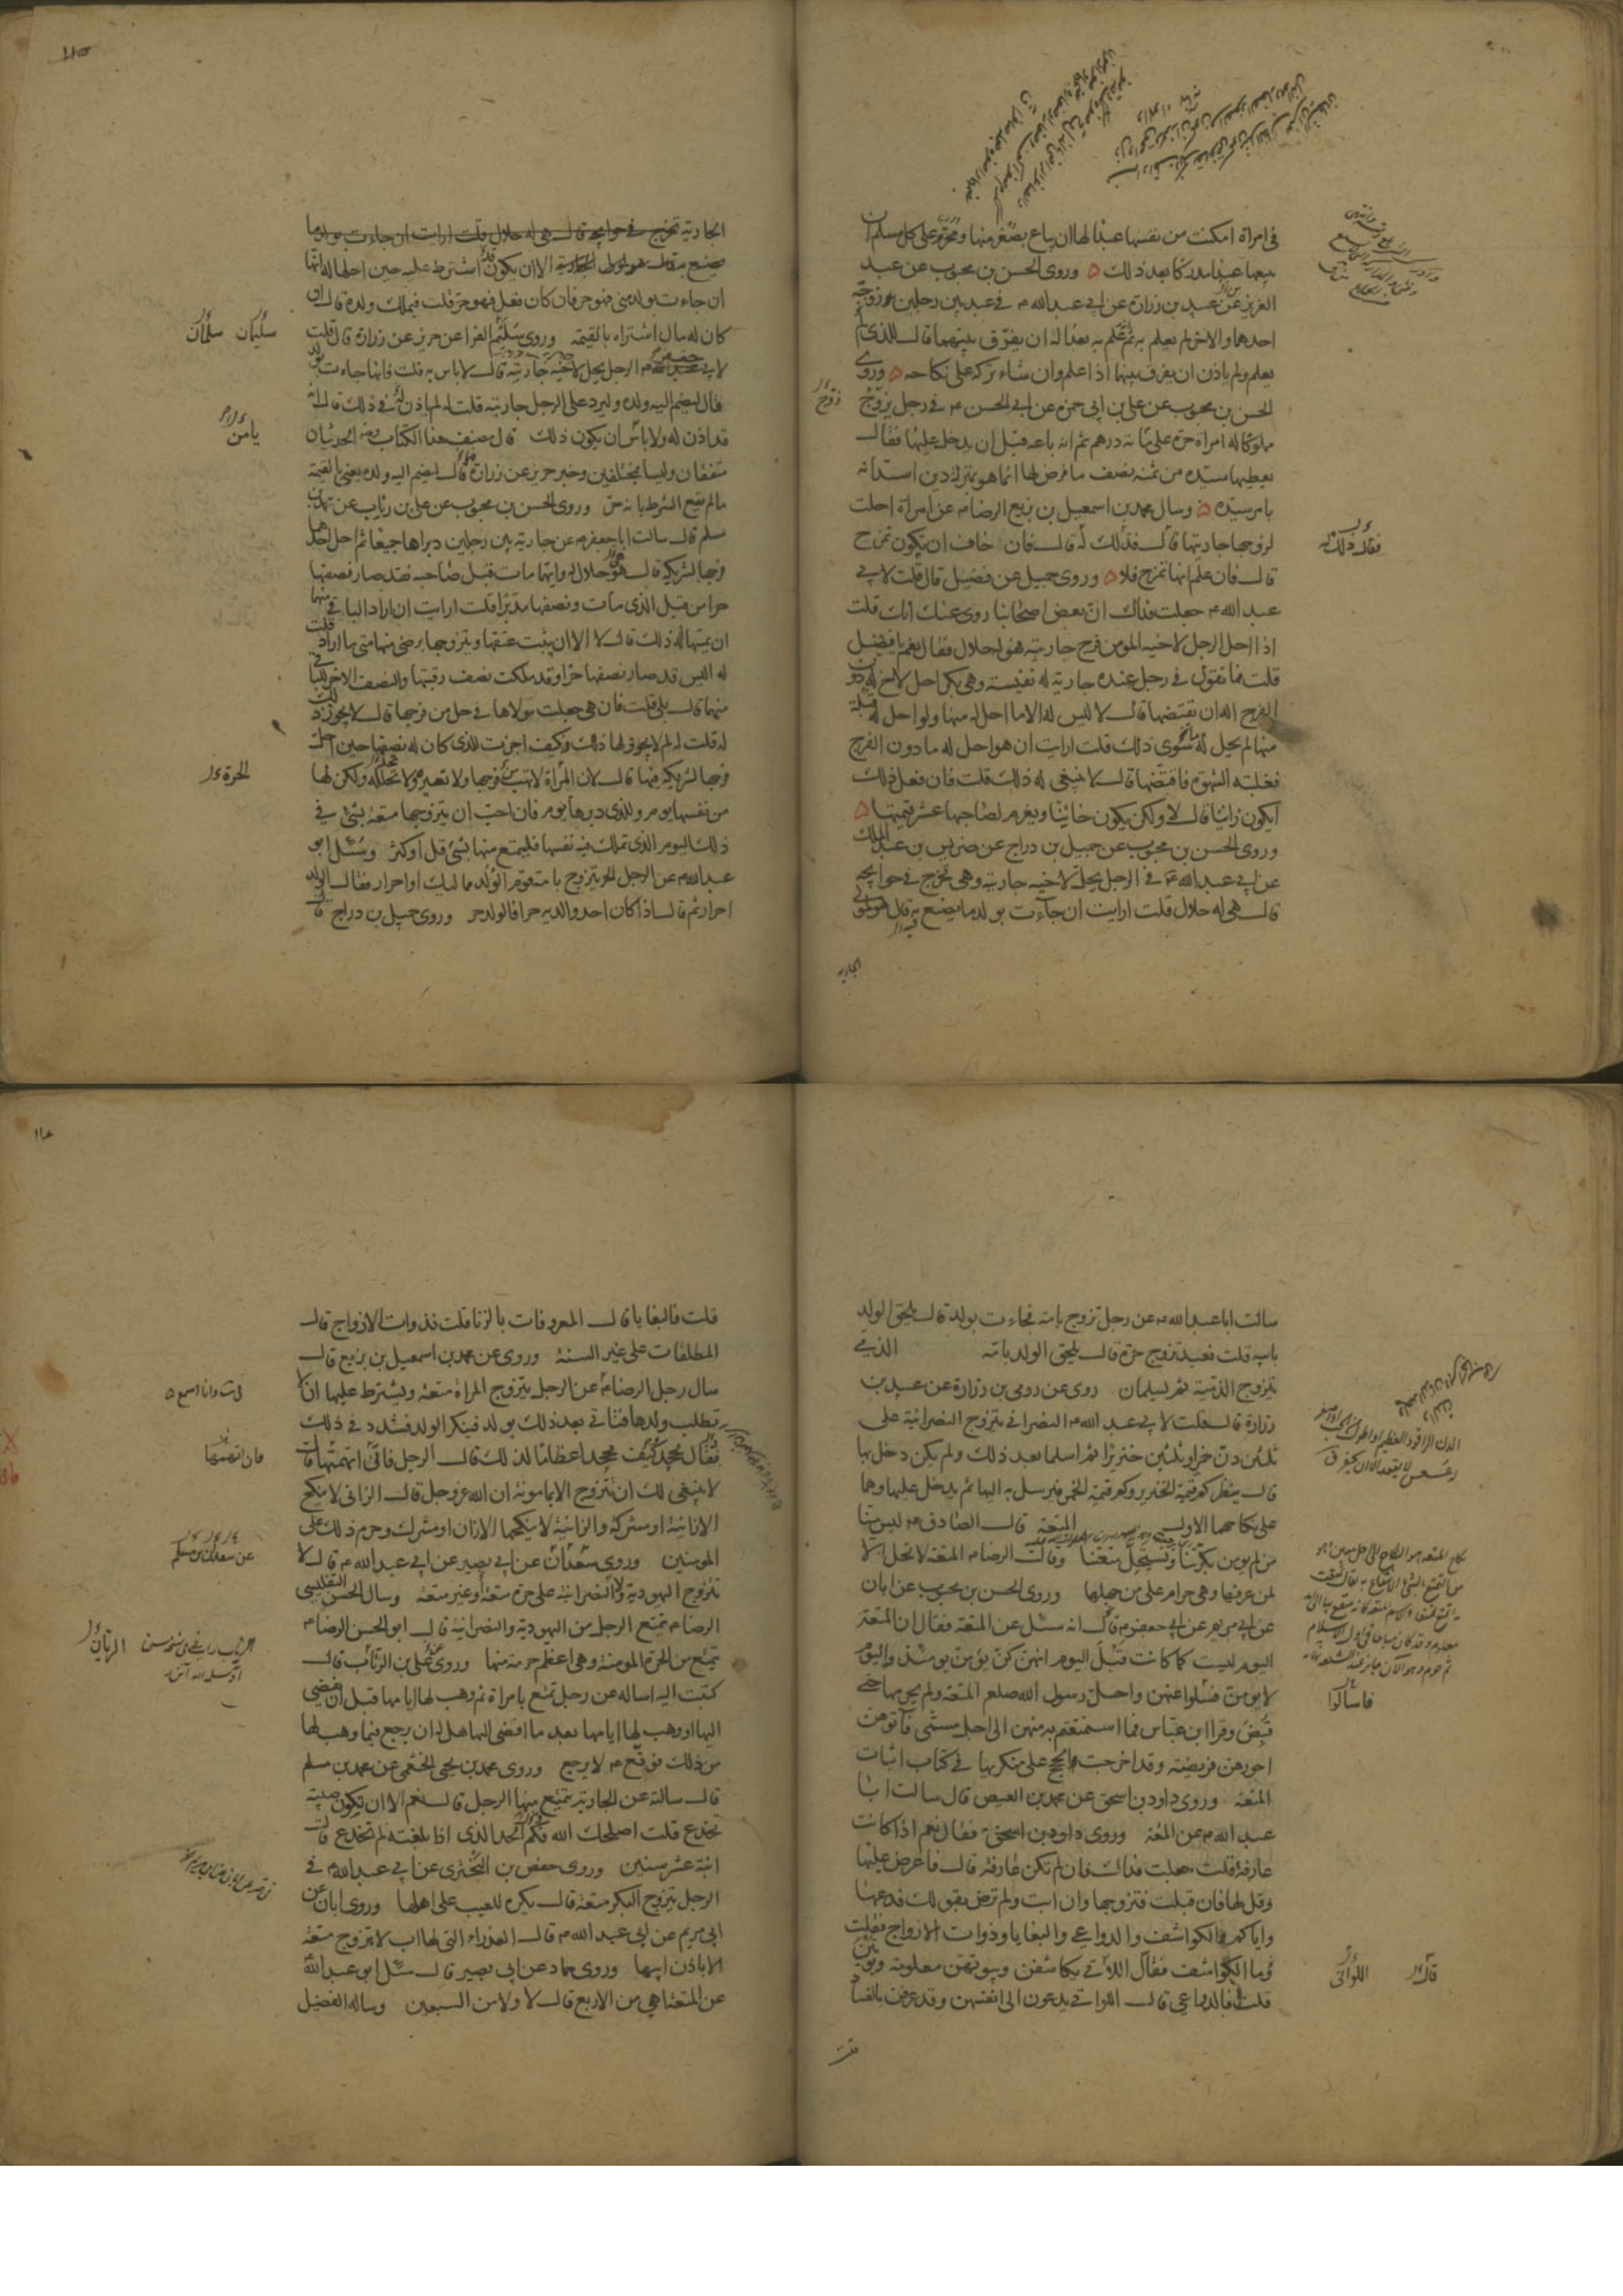 فى امراة امكنت من نفسها عبدا لها ان يباع بصغر منها ومحرم على كل مسلم ان
يبيعها عبدا مدركا بعد ذلك وروى الحسن بن محبوب عن عبد
العزيز عن عبيد بن زرارة عن ابى عبد الله م فى عبد بين رجلين زوجه
احدهما والاخر لم يعلم به ثم علم به بعد اله ان يفرق بينهما قال للذى لم
يعلم ولم ياذن ان يفرق بينهما اذا علم وان شاء تركه على نكاحه وروى
الحسن بن محبوب عن على بن ابى حمزه عن ابى الحسن م فى رجل يزوج
مملوكا له امراة حرة على مائة درهم ثم انه باعه قبل ان يدخل عليها فقال
يعطيها سيده من ثمنه نصف ما فرض لها انما هو بمنزلة دين استدانه
بامر سيده وسال محمد بن اسمعيل بن بزيع الرضا م عن امراة احلت
لزوجها جاريتها قال فذلك له قال فان خاف ان يكون تمزح
قال فان علم انها تمزح فلا وروى جميل عن فضيل قال قلت لابى
عبد الله م جعلت فداك ان بعض اصحابنا روى عنك انك قلت
اذا احل الرجل لاخيه المومن فرج جاريته فهو له حلال فقال نعم يا فضيل
قلت فما تقول فى رجل عنده جارية له نفيسة وهى بكر احل لاخ له دون
الفرج اله ان يقتضها قال لا ليس له الا ما احل له منها ولو احل له قبلة
منها لم يحل له سوى ذلك قلت ارايت ان هو احل له ما دون الفرج
فغلبته الشهوة فاقتضها قال لا ينبغى له ذلك قلت فان فعل ذلك
ايكون زانيا قال لا ولكن يكون خائنا ويغرم لصاحبها عشر قيمتها
وروى الحسن بن محبوب عن جميل بن دراج عن ضريس بن عبد الملك
عن ابى عبد الله م فى الرجل يحل لاخيه جاريته وهى تخرج فى حوائجه
قال هى له حلال قلت ارايت ان جاءت بولد ما يصنع به قال هو لمولى
الجارية
زوج
فقال ذلك له
الجارية تخرج فى حوائجه قال هى له حلال قلت ارايت ان جاءت بولد ما
يصنع به قال هو لمولى الجارية الا ان يكون قد اشترط عليه حين احلها له انها
ان جاءت بولد منى فهو حر فان كان فعل فهو حر قلت فيملك ولده قال ان
كان له مال اشتراه بالقيمة وروى سليم الفرا عن حريز عن زرارة قال قلت
لابى جعفر م الرجل يحل لاخيه جاريته قال لا باس به قلت فانها جاءت بولد
قال ليضم اليه ولده وليرد على الرجل جاريته قلت له لم ياذن له فى ذلك قال انه
قد اذن له ولا يأمن ان يكون ذلك قال مصنف هذا الكتاب رضه الحديثان
متفقان وليسا مختلفين وخبر حريز عن زرارة قال ليضم اليه ولده يعنى بالقيمة
ما لم يقع الشرط بانه حر وروى الحسن بن محبوب عن على بن رئاب عن محمد بن
مسلم قال سالت ابا جعفر م عن جارية بين رجلين دبراها جميعا ثم احل احدهما
فرجها لشريكه قال هو له حلال وايهما مات قبل صاحبه فقد صار نصفها
حرا من قبل الذى مات ونصفها مدبرا قلت ارايت ان اراد الباقى منهما
ان يمسها اله ذلك قال لا الا ان يبت عتقها ويتزوجها برضى منها متى ما اراد قلت
له اليس قد صار نصفها حرا وقد ملكت نصف رقبتها والنصف الاخر للباقى
منهما قال بلى قلت فان هى جعلت مولاها فى حل من فرجها قال لا يجوز ذلك
له قلت له لم لا يجوز لها ذلك وكيف اجزت للذى كان له نصفها حين احل
فرجها لشريكه منها قال لان المرأة لا تهب فرجها ولا تعيره ولا تحلله ولكن لها
من نفسها يوم وللذى دبرها يوم فان احب ان يتزوجها متعة بشئ فى
ذلك اليوم الذى تملك فيه نفسها فليتمتع منها بشئ قل او كثر وسئل ابو
عبد الله م عن الرجل الحر يتزوج بامة قوم الولد مماليك او احرار فقال الولد
احرار ثم قال اذا كان احد والديه حرا فالولد حر وروى جميل بن دراج قال
سليمان سلمان
يامن
الحرة
سالت ابا عبد الله م عن رجل تزوج بامة فجاءت بولد قال يلحق الولد
بابيه قلت فعبد تزوج حرة قال يلحق الولد بامه الذمى
يتزوج الذمية ثم يسلمان روى عن رومى بن زرارة عن عبيد بن
زرارة قال قلت لابى عبد الله م النصرانى يتزوج النصرانية على
ثلثين دن خمر او ثلثين خنزيرا ثم اسلما بعد ذلك ولم يكن دخل بها
قال ينظر كم قيمة الخنزير وكم قيمة الخمر فيرسل به اليها ثم يدخل عليها وهما
على نكاحهما الاول المتعة قال الصادق م ليس منا
من لم يومن بكرتنا ويستحل متعتنا وقال الرضا م المتعة لا تحل الا
لمن عرفها وهى حرام على من جهلها وروى الحسن بن محبوب عن ابان
عن ابى مريم عن ابى جعفر م قال انه سئل عن المتعة فقال ان المتعة
اليوم ليست كما كانت قبل اليوم انهن كن يومن يومئذ واليوم
لا يومن فسئلوا عنهن واحل رسول الله صلعم المتعة ولم يحرمها حتى
قبض وقرا ابن عباس فما استمتعتم به منهن الى اجل مسمى فآتوهن
اجورهن فريضة وقد اخرجت الحجج على منكريها فى كتاب اثبات
المتعة وروى داود بن اسحق عن محمد بن الفيض قال سالت ابا
عبد الله م عن المتعة وروى داود بن اسحق فقال نعم اذا كانت
عارفة قلت جعلت فداك فان لم تكن عارفة قال فاعرض عليها
وقل لها فان قبلت فتزوجها وان ابت ولم ترض بقولك فدعها
واياكم والكواشف والدواعى والبغايا وذوات الازواج فقلت
وما الكواشف فقال اللاتى يكاشفن وبيوتهن معلومة ويؤتين
قلت فالدواعى قال اللواتى يدعون الى انفسهن وقد عرفن بالفساد
قلت
فاسألوا
قال اللواتى
قلت فالبغايا قال المعروفات بالزنا قلت فذوات الازواج قال
المطلقات على غير السنة وروى عن محمد بن اسمعيل بن بزيع قال
سال رجل الرضا م عن الرجل يتزوج المراة متعة ويشترط عليها ان لا
يطلب ولدها فتاتى بعد ذلك بولد فينكر الولد فشدد فى ذلك
فقال يجحد كيف يجحد اعظاما لذلك قال الرجل فانى اتهمتها قال
لا ينبغى لك ان تتزوج الا بمامونة ان الله عز وجل قال الزانى لا ينكح
الا زانية او مشركة والزانية لا ينكحها الا زان او مشرك وحرم ذلك على
المومنين وروى سعدان عن ابى بصير عن ابى عبد الله م قال لا
تتزوج اليهودية ولا النصرانية على حرة متعة وغير متعة وسال الحسن التفليسى
الرضا م يتمتع الرجل من اليهودية والنصرانية قال ابو الحسن الرضا م
يتمتع من الحرة المومنة وهى اعظم حرمة منها وروى عن على بن الرئاب قال
كتبت اليه اساله عن رجل تمتع بامراة ثم وهب لها ايامها قبل ان يفضى
اليها او وهب لها ايامها بعد ما افضى اليها هل له ان يرجع فيما وهب لها
من ذلك فوقع م لا يرجع وروى محمد بن يحيى الخثعمى عن محمد بن مسلم
قال سالته عن الجارية يتمتع منها الرجل قال نعم الا ان تكون صبية
تخدع قلت اصلحك الله فكم الحد الذى اذا بلغته لم تخدع قال
ابنة عشر سنين وروى حفص بن البخترى عن ابى عبد الله م فى
الرجل يتزوج البكر متعة قال يكره للعيب على اهلها وروى ابان عن
ابى مريم عن ابى عبد الله م قال العذراء التى لها اب لا تتزوج متعة
الا باذن ابيها وروى حماد عن ابى بصير قال سئل ابو عبد الله
عن المتعة اهى من الاربع قال لا ولا من السبعين وساله الفضيل
فان اتهمتها
عن سعدان بن مسلم
الريان